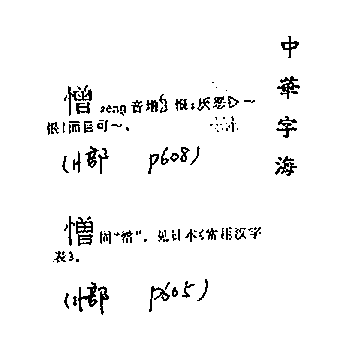 中華字海
憎 zēng 音增 恨;厌恶▷～
恨|面目可～。
(忄部 p608)
憎 同“憎”。见日本《常用汉字
表》。
(忄部 p605)